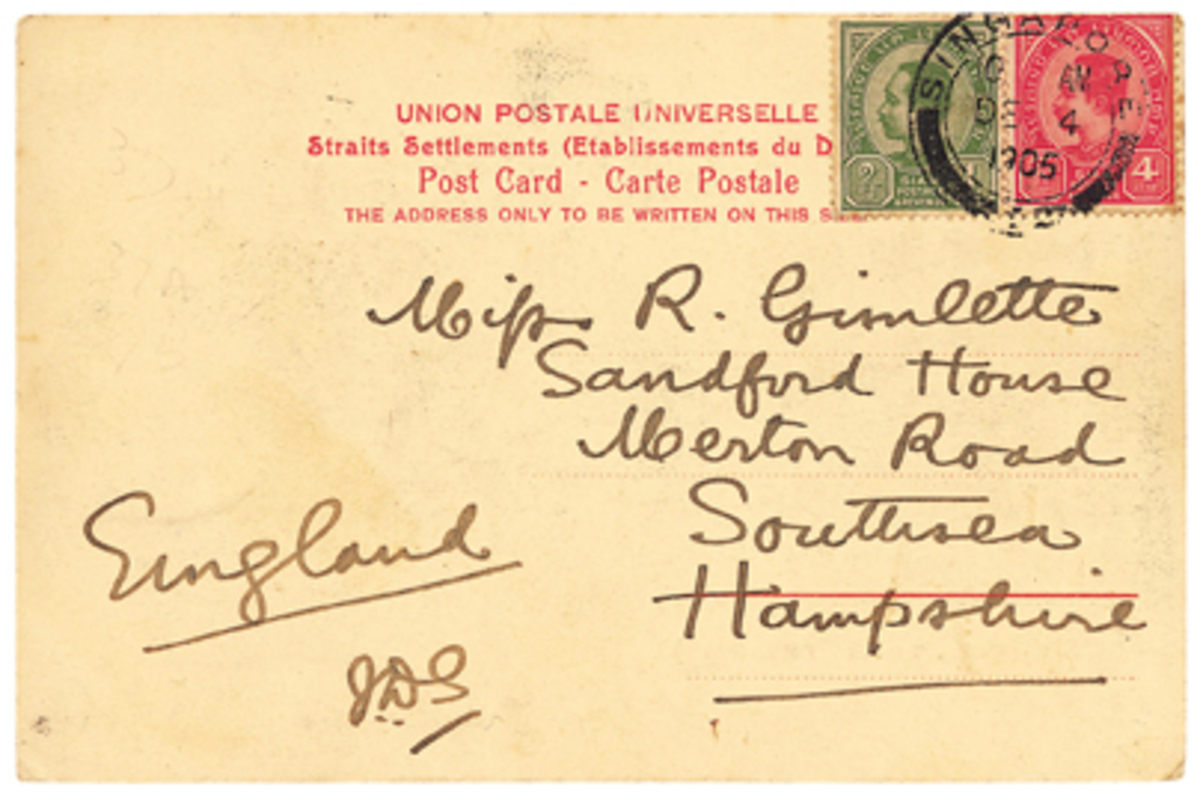 UNION POSTALE UNIVERSELLE
Straits Settlements (Etablissements du D
Post Card - Carte Postale
THE ADDRESS ONLY TO BE WRITTEN ON THIS
SINGAPORE
AM
DE 4
1905
2
4
Miss R. Gimlette
Sandford House
Merton Road
Southsea
Hampshire
England
JDS